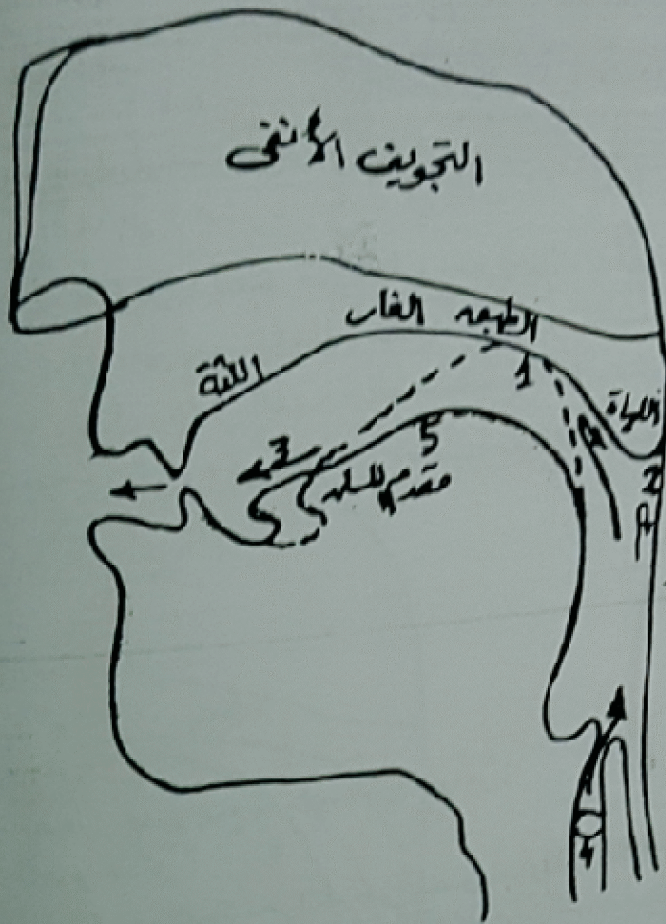 التجويف الأنفى
الطبق
الغار
اللثة
اللهاة
1
2
3
5
مقدم اللسان
4